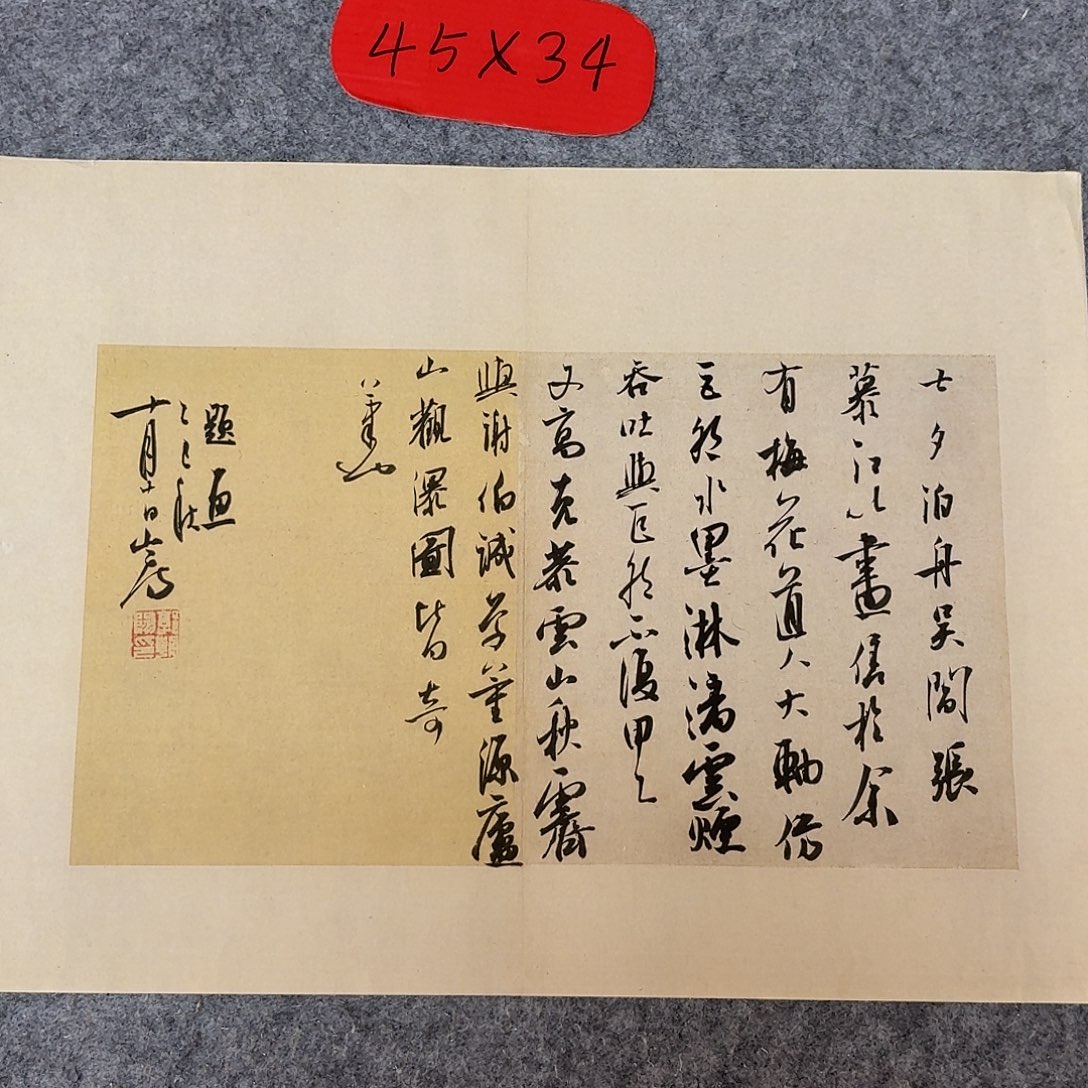 45X34
七夕泊舟吳閶張
慕江以畫售於余
有梅花道人大軸仿
巨然水墨淋漓雲煙
吞吐與巨然不復甲乙
又高克恭雲山秋霽
與謝伯誠學董源廬
山觀瀑圖皆奇
筆也
題畫
十月十日